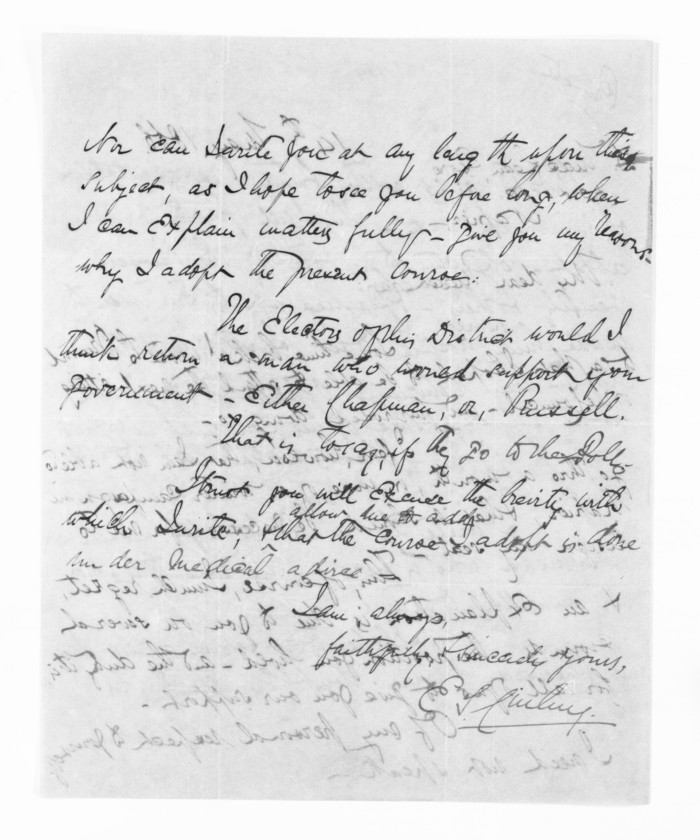 Nor can I write you at any length upon this
subject, as I hope to see you before long, when
I can explain matters fully - give you my reasons -
why I adopt the present course.
The Electors of this District would I
think return a man who would support your
Government - Either Chapman, or, - Russell.
That is to say, if they go to the Polls
I trust you will excuse the brevity with
allow me to add
which I write, & that the course I adopt is done
under medical advice.
I am always,
faithfully & sincerely yours,
E. S.